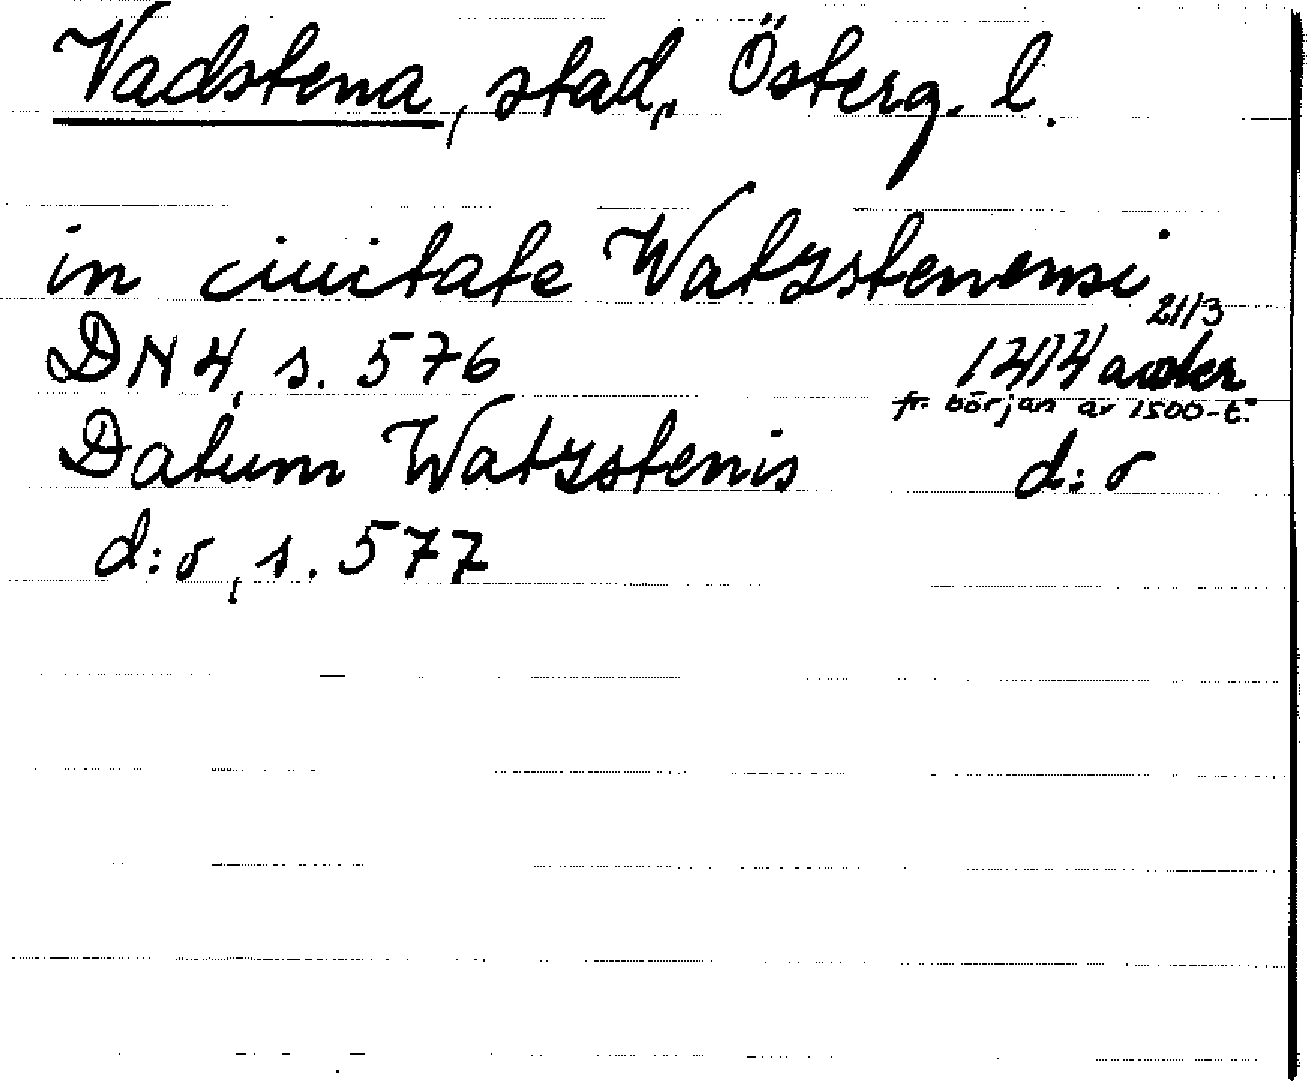 Vadstena, stad, Österg. l.
in ciuitate Watzstenensi
21/3
DN 4, s. 576 1414 avskr
fr. början av 1500-t.
Datum Watzstenis d:o
d:o, s. 577